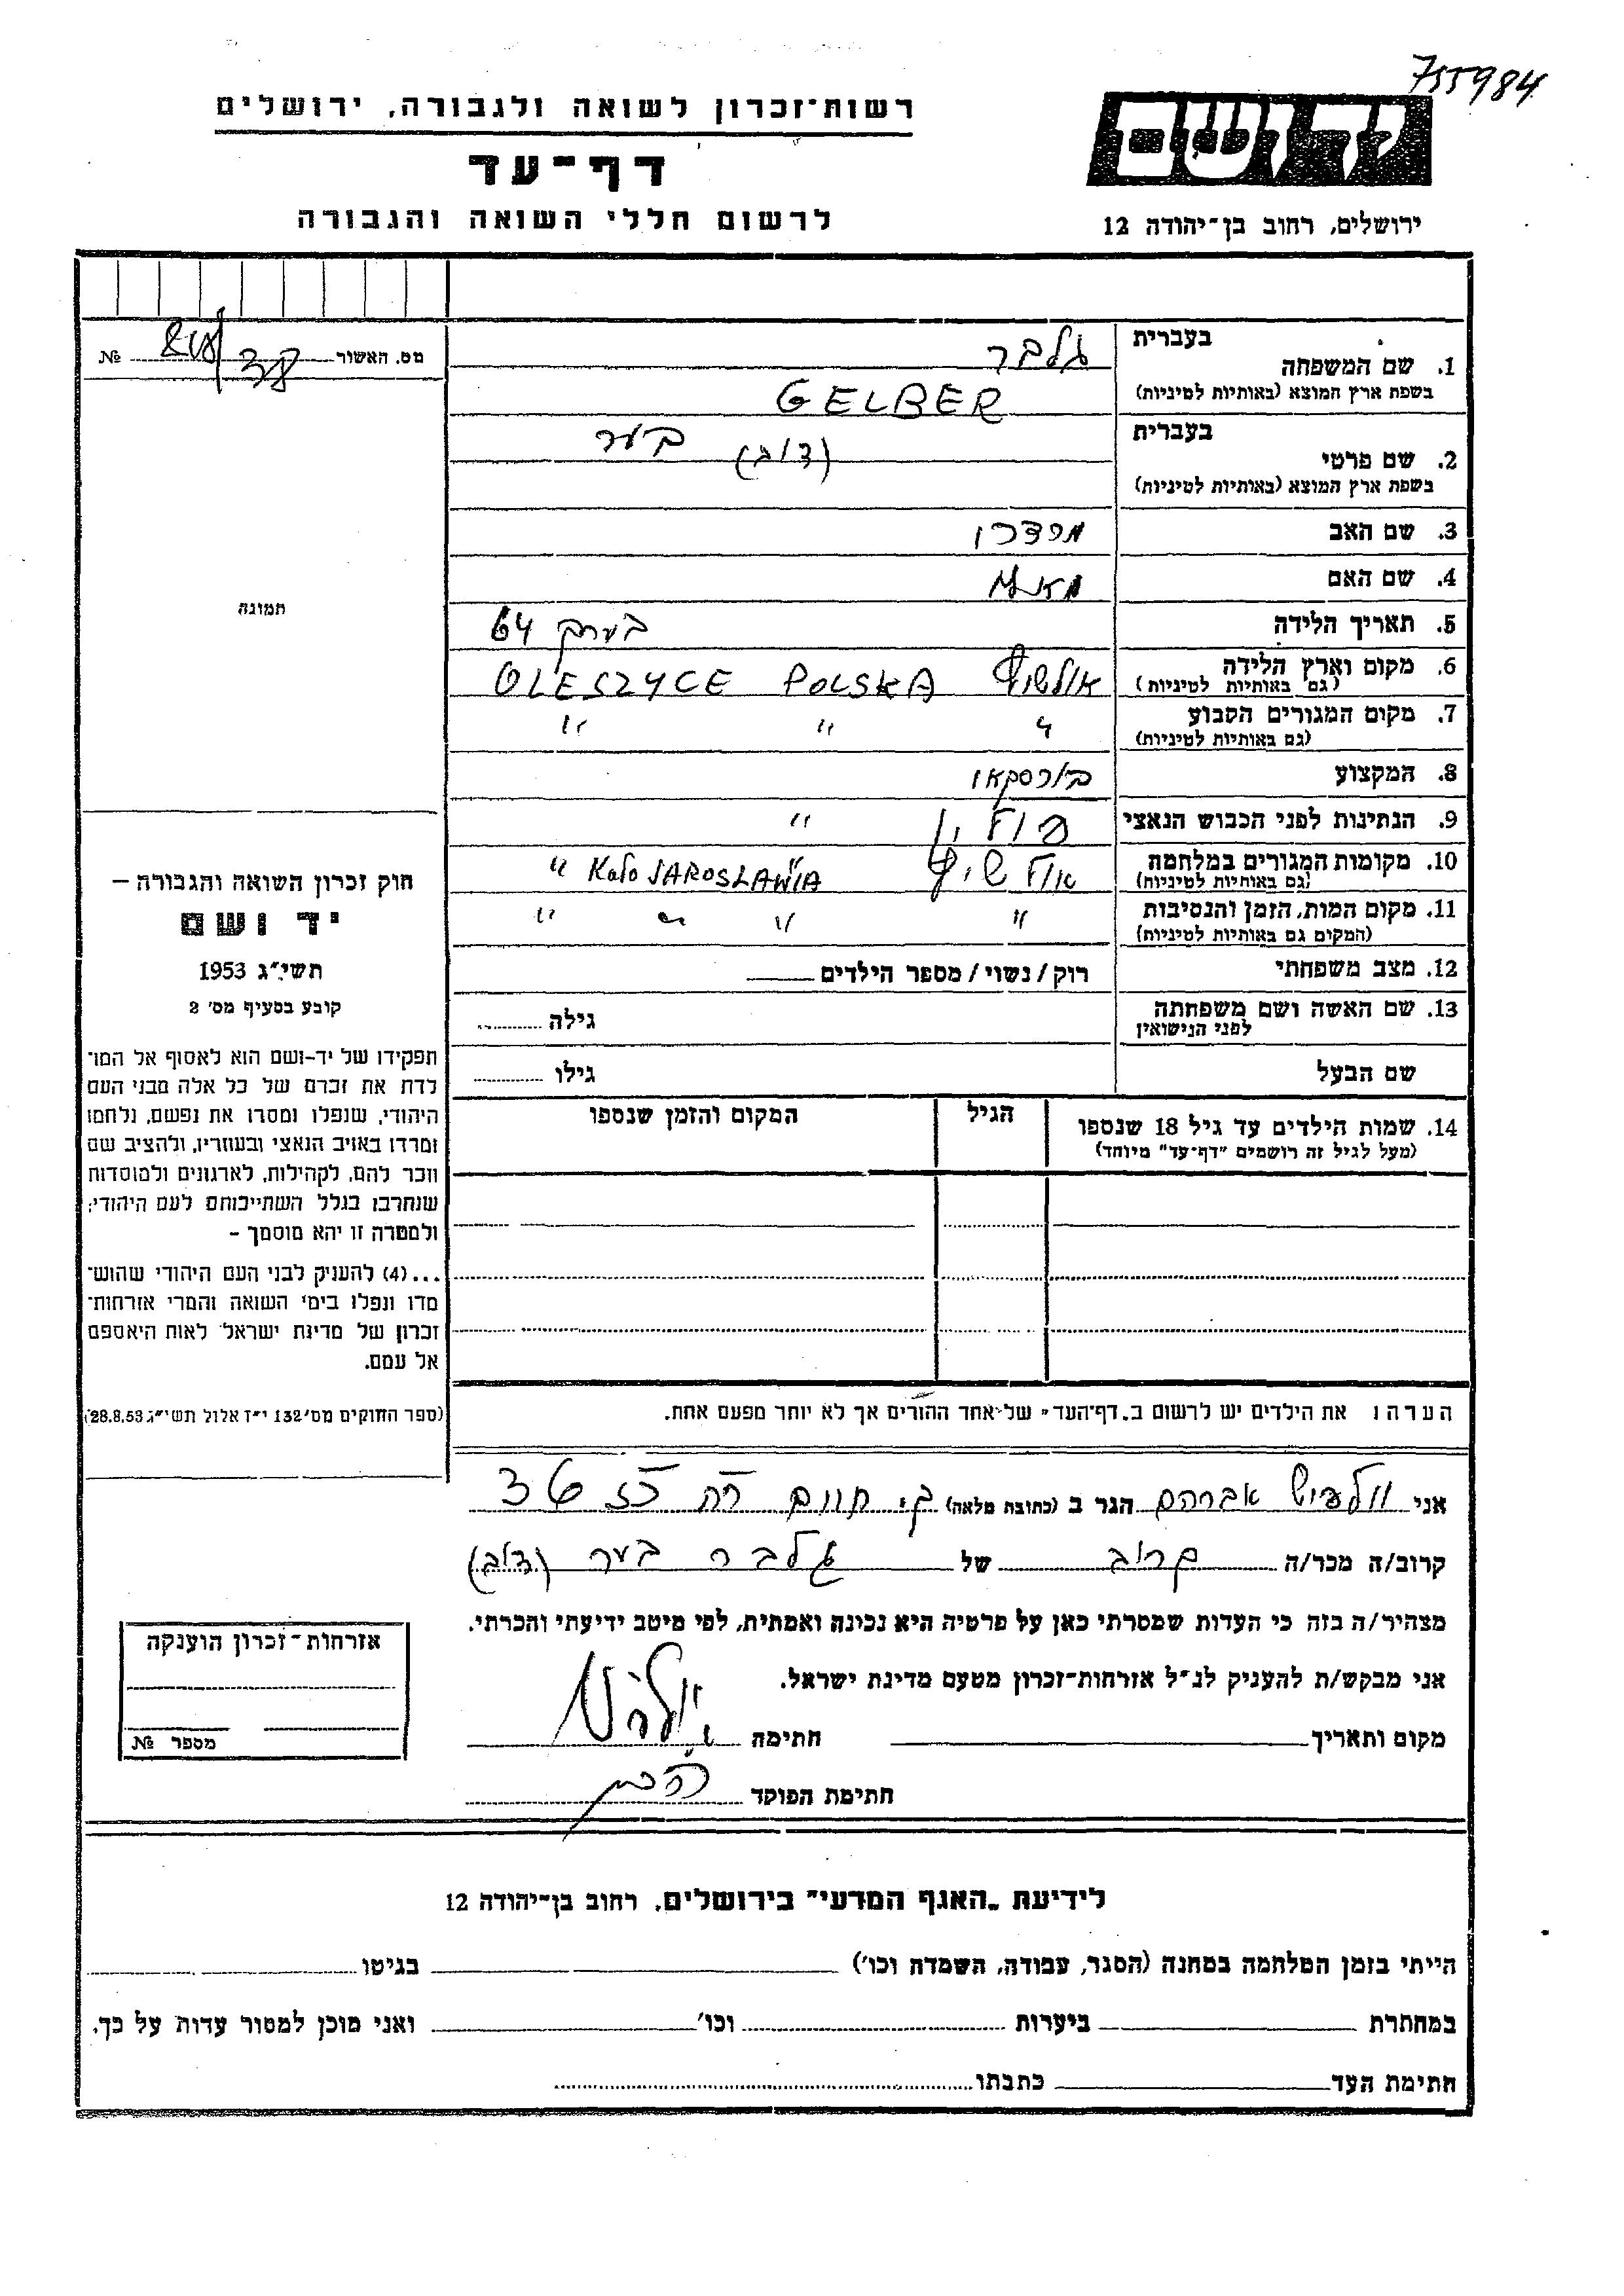 755984
יד ושם
ירושלים, רחוב בן־יהודה 12
רשות־זכרון לשואה ולגבורה, ירושלים
דף־עד
לרשום חללי השואה והגבורה
מס. האשור № 
בעברית
1. שם המשפחה גלבר
בשפת ארץ המוצא (באותיות לטיניות) GELBER
בעברית
2. שם פרטי (דוב) בער
בשפת ארץ המוצא (באותיות לטיניות)
3. שם האב
4. שם האם
5. תאריך הלידה בערך 64
6. מקום וארץ הלידה
(גם באותיות לטיניות) POLSKA OLESZYCE
7. מקום המגורים הקבוע " " "
(גם באותיות לטיניות)
8. המקצוע בורסקאי
9. הנתינות לפני הכבוש הנאצי "
10. מקומות המגורים במלחמה
(גם באותיות לטיניות) Koło JAROSŁAWIA "
11. מקום המות, הזמן והנסיבות " " " "
(המקום גם באותיות לטיניות)
12. מצב משפחתי רוק/נשוי/מספר הילדים
13. שם האשה ושם משפחתה
לפני הנישואין גילה
שם הבעל גילו
14. שמות הילדים עד גיל 18 שנספו הגיל המקום והזמן שנספו
(מעל לגיל זה רושמים "דף־עד" מיוחד)
תמונה
חוק זכרון השואה והגבורה –
יד ושם
תשי"ג 1953
קובע בסעיף מס' 2
תפקידו של יד-ושם הוא לאסוף אל המו־
לדת את זכרם של כל אלה מבני העם
היהודי, שנפלו ומסרו את נפשם, נלחמו
ומרדו באויב הנאצי ובעוזריו, ולהציב שם
וזכר להם, לקהילות, לארגונים ולמוסדות
שנחרבו בגלל השתייכותם לעם היהודי;
ולמטרה זו יהא מוסמך –
...(4) להעניק לבני העם היהודי שהוש־
מדו ונפלו בימי השואה והמרי אזרחות־
זכרון של מדינת ישראל לאות היאספם
אל עמם.
(ספר החוקים מס' 132 י"ז אלול תשי"ג 28.8.53)
הערה: את הילדים יש לרשום ב„דף־העד" של אחד ההורים אך לא יותר מפעם אחת.
אני אברהם הגר ב (כתובת מלאה)
קרוב/ה מכר/ה קרוב של גלבר בער (דוב)
מצהיר/ה בזה כי העדות שמסרתי כאן על פרטיה היא נכונה ואמתית, לפי מיטב ידיעתי והכרתי.
אני מבקש/ת להעניק לנ"ל אזרחות־זכרון מטעם מדינת ישראל.
מקום ותאריך חתימה
חתימת הפוקד
אזרחות־זכרון הוענקה
מספר №
לידיעת „האגף המדעי" בירושלים, רחוב בן־יהודה 12
הייתי בזמן המלחמה במחנה (הסגר, עבודה, השמדה וכו') בגיטו
במחתרת ביערות וכו' ואני מוכן למסור עדות על כך.
חתימת העד כתבתו